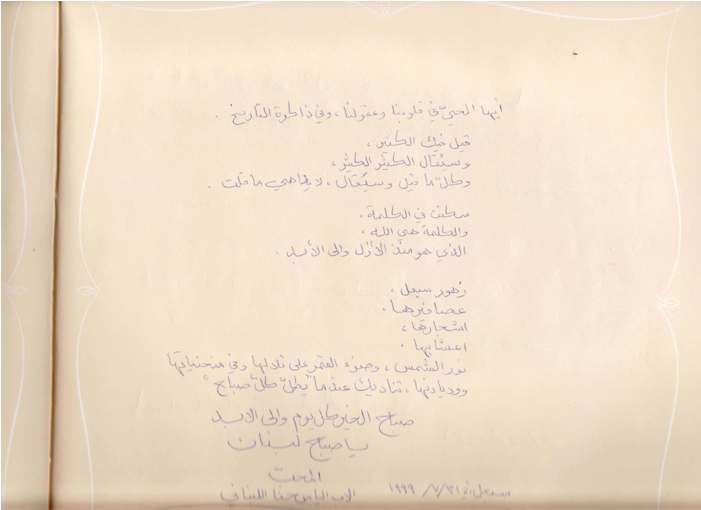 أيها الحيّ في قلوبنا وعقولنا، وفي ذاكرة التاريخ.
قيل فيك الكثير،
وسيُقال الكثير الكثير،
وكلّ ما قيل وسيُقال، لا يضاهي ما قلت.
سكنت في الكلمة.
والكلمة هي الله.
الذي هو منذ الأزل وإلى الأبد.
زهور سبعل،
عصافيرها.
أشجارها،
أعشابها.
نور الشمس، وضوء القمر على تلالها وفي منحنياتها
ووديانها، تناديك عندما يطلّ كلّ صباح
صباح الخير كل يوم وإلى الأبد
يا صباح لبنان
المحب
الأب الياس حنا اللبناني
سبعل في ٣١/٧/١٩٩٩